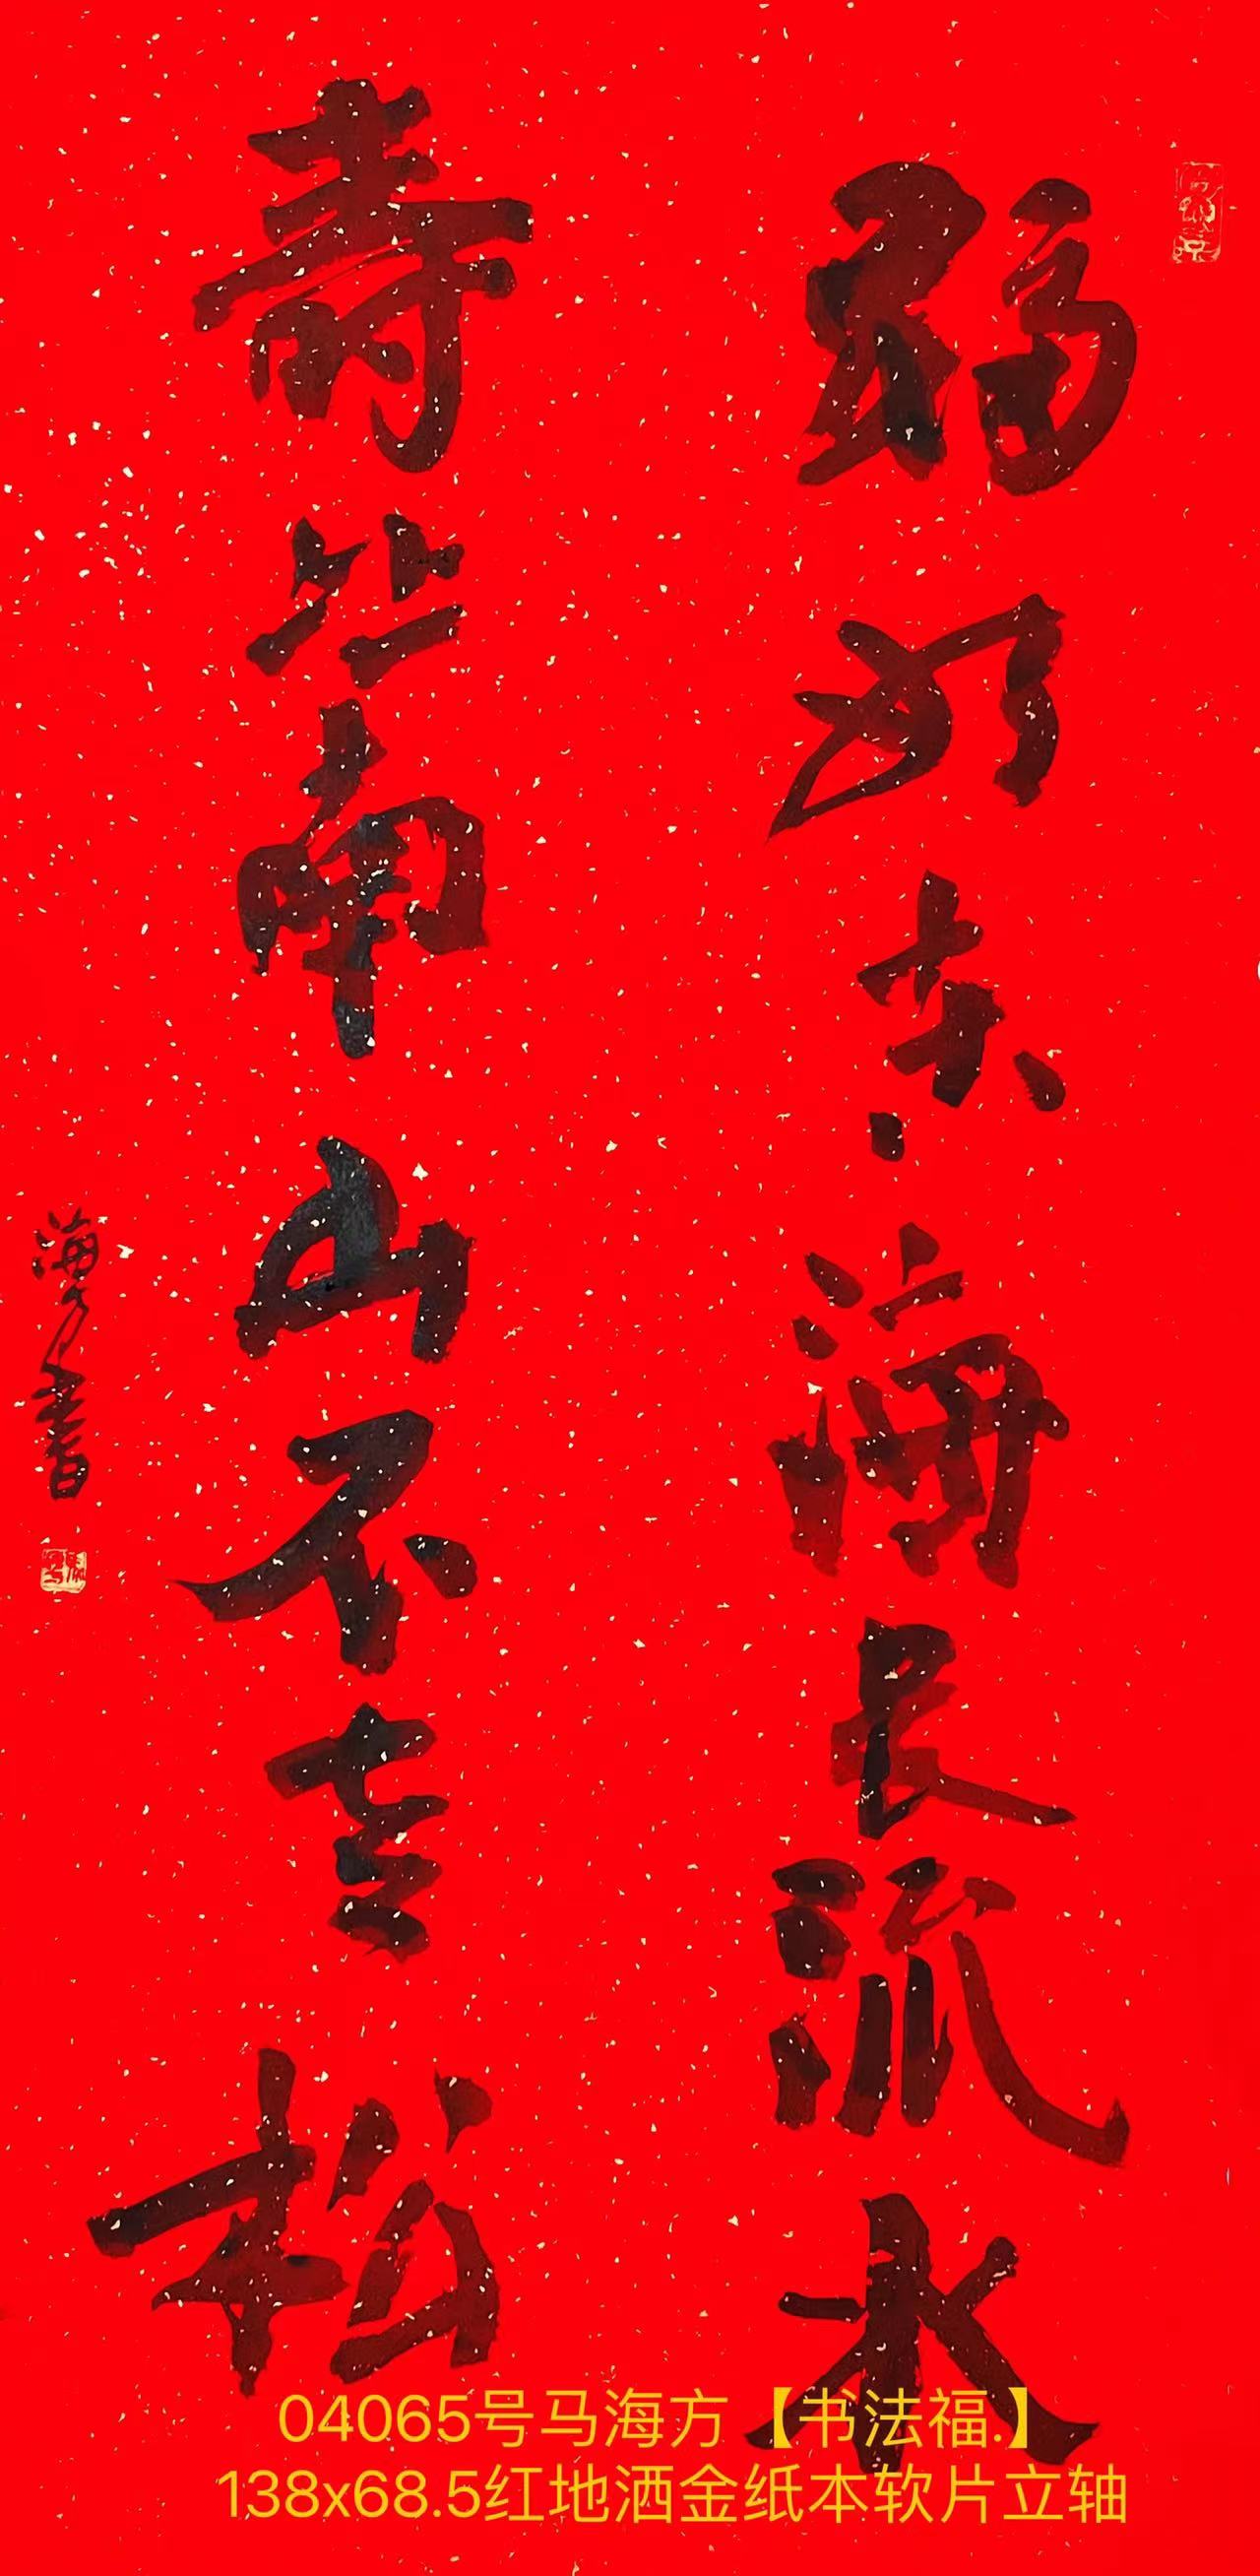 福如东海长流水
寿比南山不老松
海方书
04065号马海方【书法福.】
138x68.5红地洒金纸本软片立轴